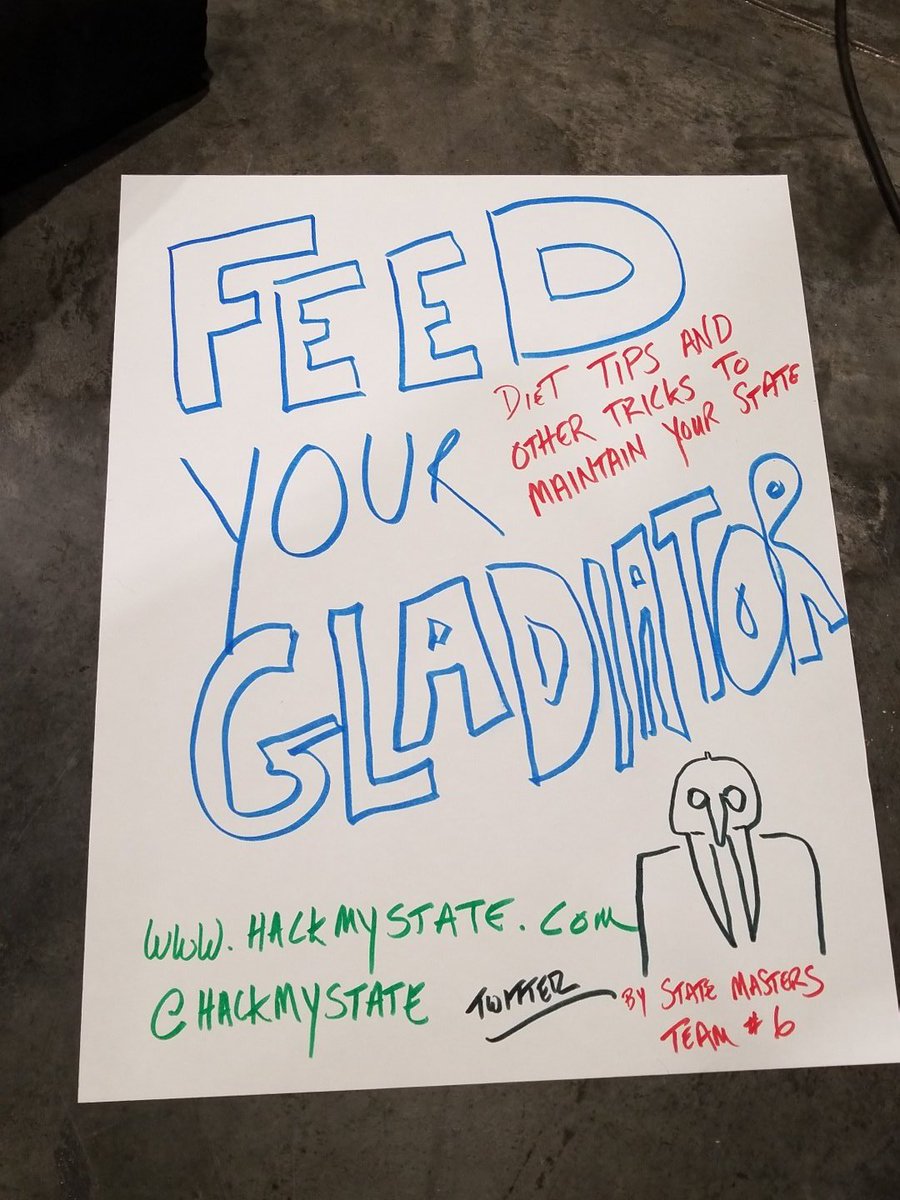 FEED
DIET TIPS AND
OTHER TRICKS TO
MAINTAIN YOUR STATE
YOUR
GLADIATOR
WWW.HACKMYSTATE.COM
@HACKMYSTATE
TWITTER
BY STATE MASTERS
TEAM #6